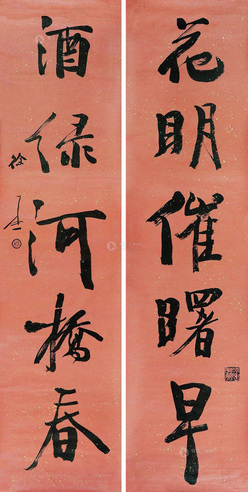 花明催曙早
酒绿河桥春
徐